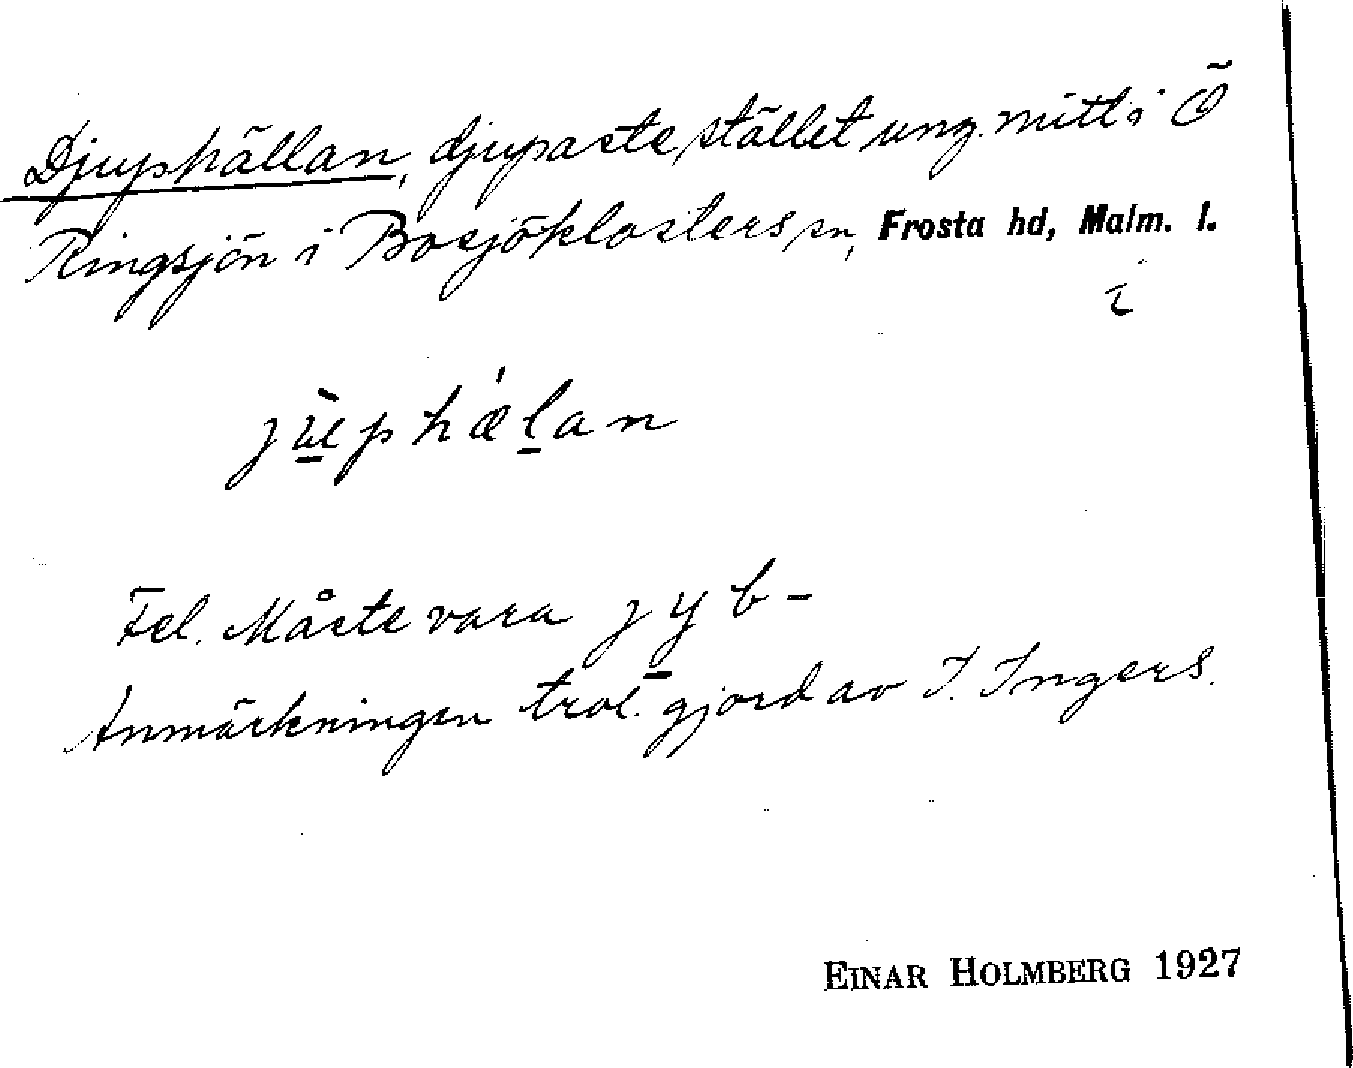 Djuphällan, djupaste stället ung. mitt i Ö
Ringsjön i Bosjöklosters sn, Frosta hd, Malm. l.
i
Fel. Måste vara j y b -
Anmärkningen trol. gjord av I. Ingers.
EINAR HOLMBERG 1927